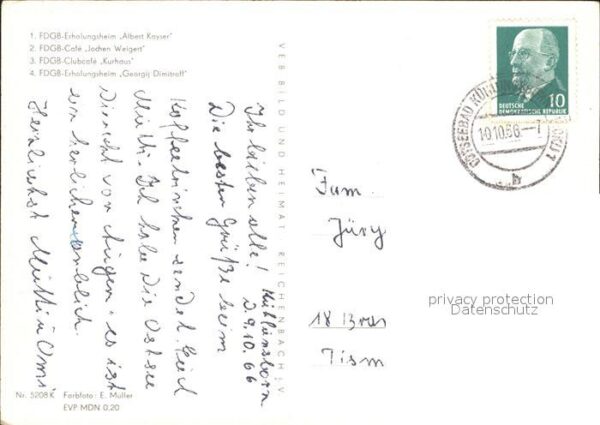 1. FDGB-Erholungsheim „Albert Kayser"
2. FDGB-Café „Jochen Weigert"
3. FDGB-Clubcafé „Kurhaus"
4. FDGB-Erholungsheim „Georgij Dimitroff"
VEB BILD UND HEIMAT REICHENBACH i. V.
Kühlungsborn
D. 9.10.66
Ihr Lieben alle!
Die besten Grüße beim
Kaffeetrinken sendet Euch
Mutti. Ich habe die Ostsee
Direckt vor Augen, es ist
ein herrlicher Anblick.
Herzlichst Mutti u Omi
Nr. 5208 K Farbfoto: E. Müller
EVP MDN 0,20
DEUTSCHE
DEMOKRATISCHE REPUBLIK
10
OSTSEEBAD
10.10.66-7
Fam.
Jüry
18
privacy protection
Datenschutz